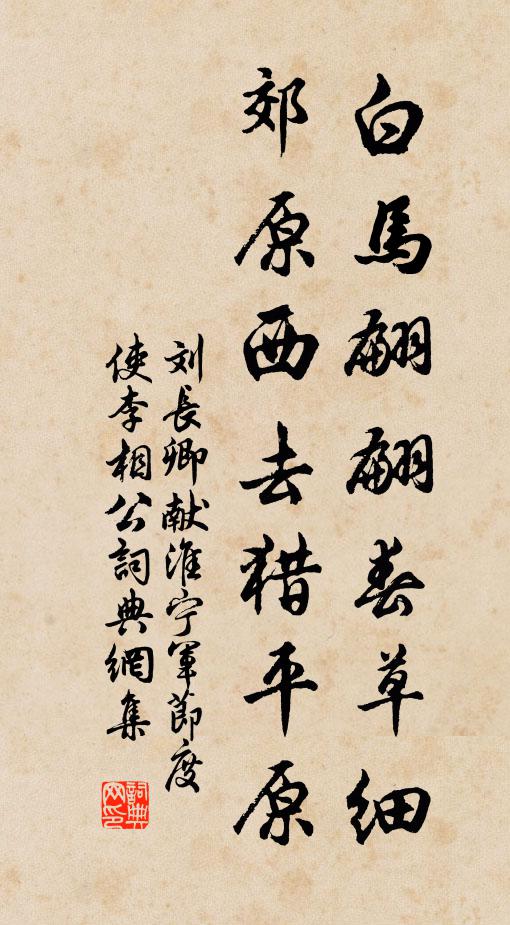 白馬翩翩春草細
郊原西去猎平原
刘長卿献淮宁軍節度
使李相公詞典網集
詞典
网印